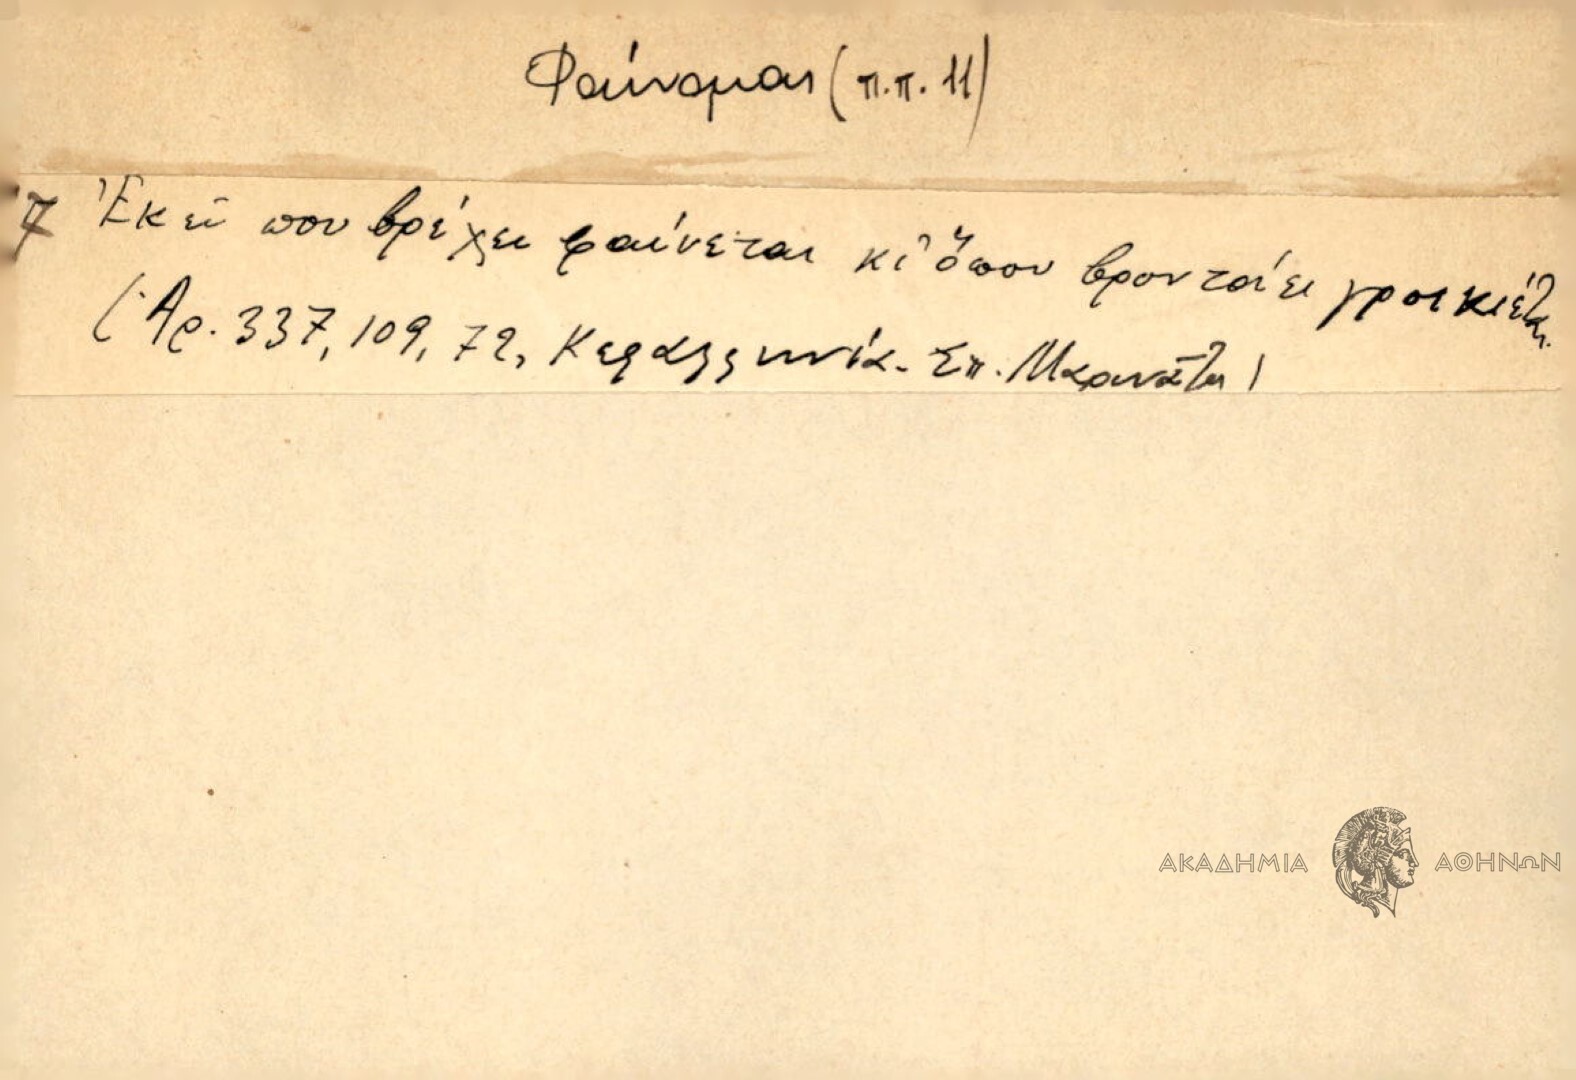 Φαίνομαι (π.π. 11)
7 Ἐκεῖ που βρέχει φαίνεται κι' ὅπου βροντάει γροικιέται.
(Ἀρ. 337, 109, 72, Κεφαλληνία. Σπ. Μαρινᾶτου)
ΑΚΑΔΗΜΙΑ ΑΘΗΝΩΝ